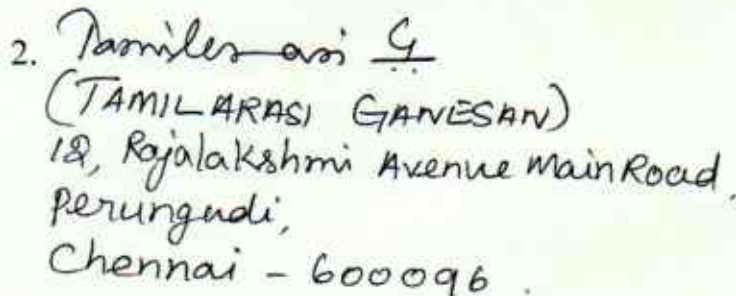 2. Tamilarasi G
(TAMILARASI GANESAN)
12, Rajalakshmi Avenue Main Road,
Perungudi,
Chennai - 600096.